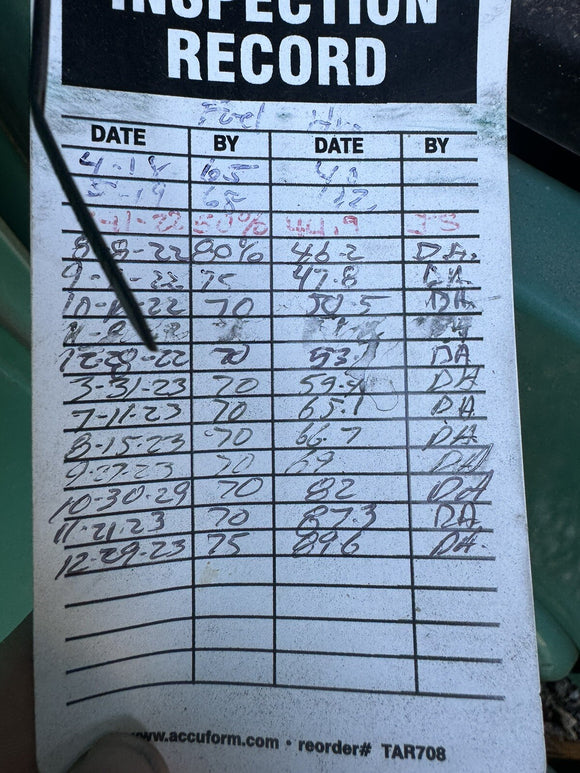 INSPECTION
RECORD
Fuel Hr.
DATE BY DATE BY
4-14 65
5-19 65
-11-22 50% 44.9 JS
8-8-22 80% 46.2 DA.
22 75 47.8 DA
22 70 50.5 DA
12-28-22 70 53. DA
3-31-23 70 59.4 DA
7-11-23 70 65.1 DA
8-15-23 70 66.7 DA
9-27-23 70 69 DA
10-30-29 70 82 DA
11-21-23 70 87.3 DA
12-29-23 75 89.6 DA.
www.accuform.com • reorder# TAR708